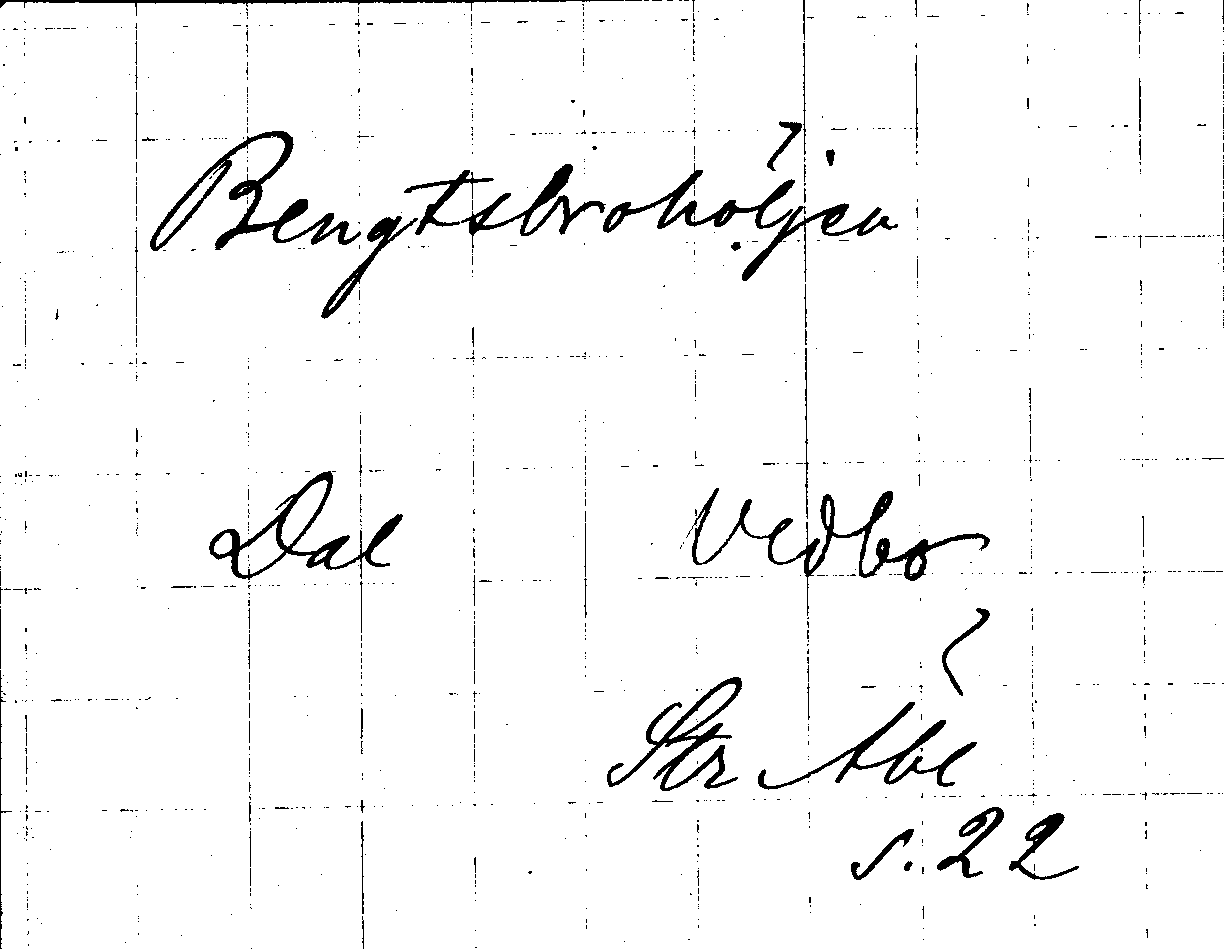 Bengtsbrohöljen
Dal Vedbo
Str
s. 22